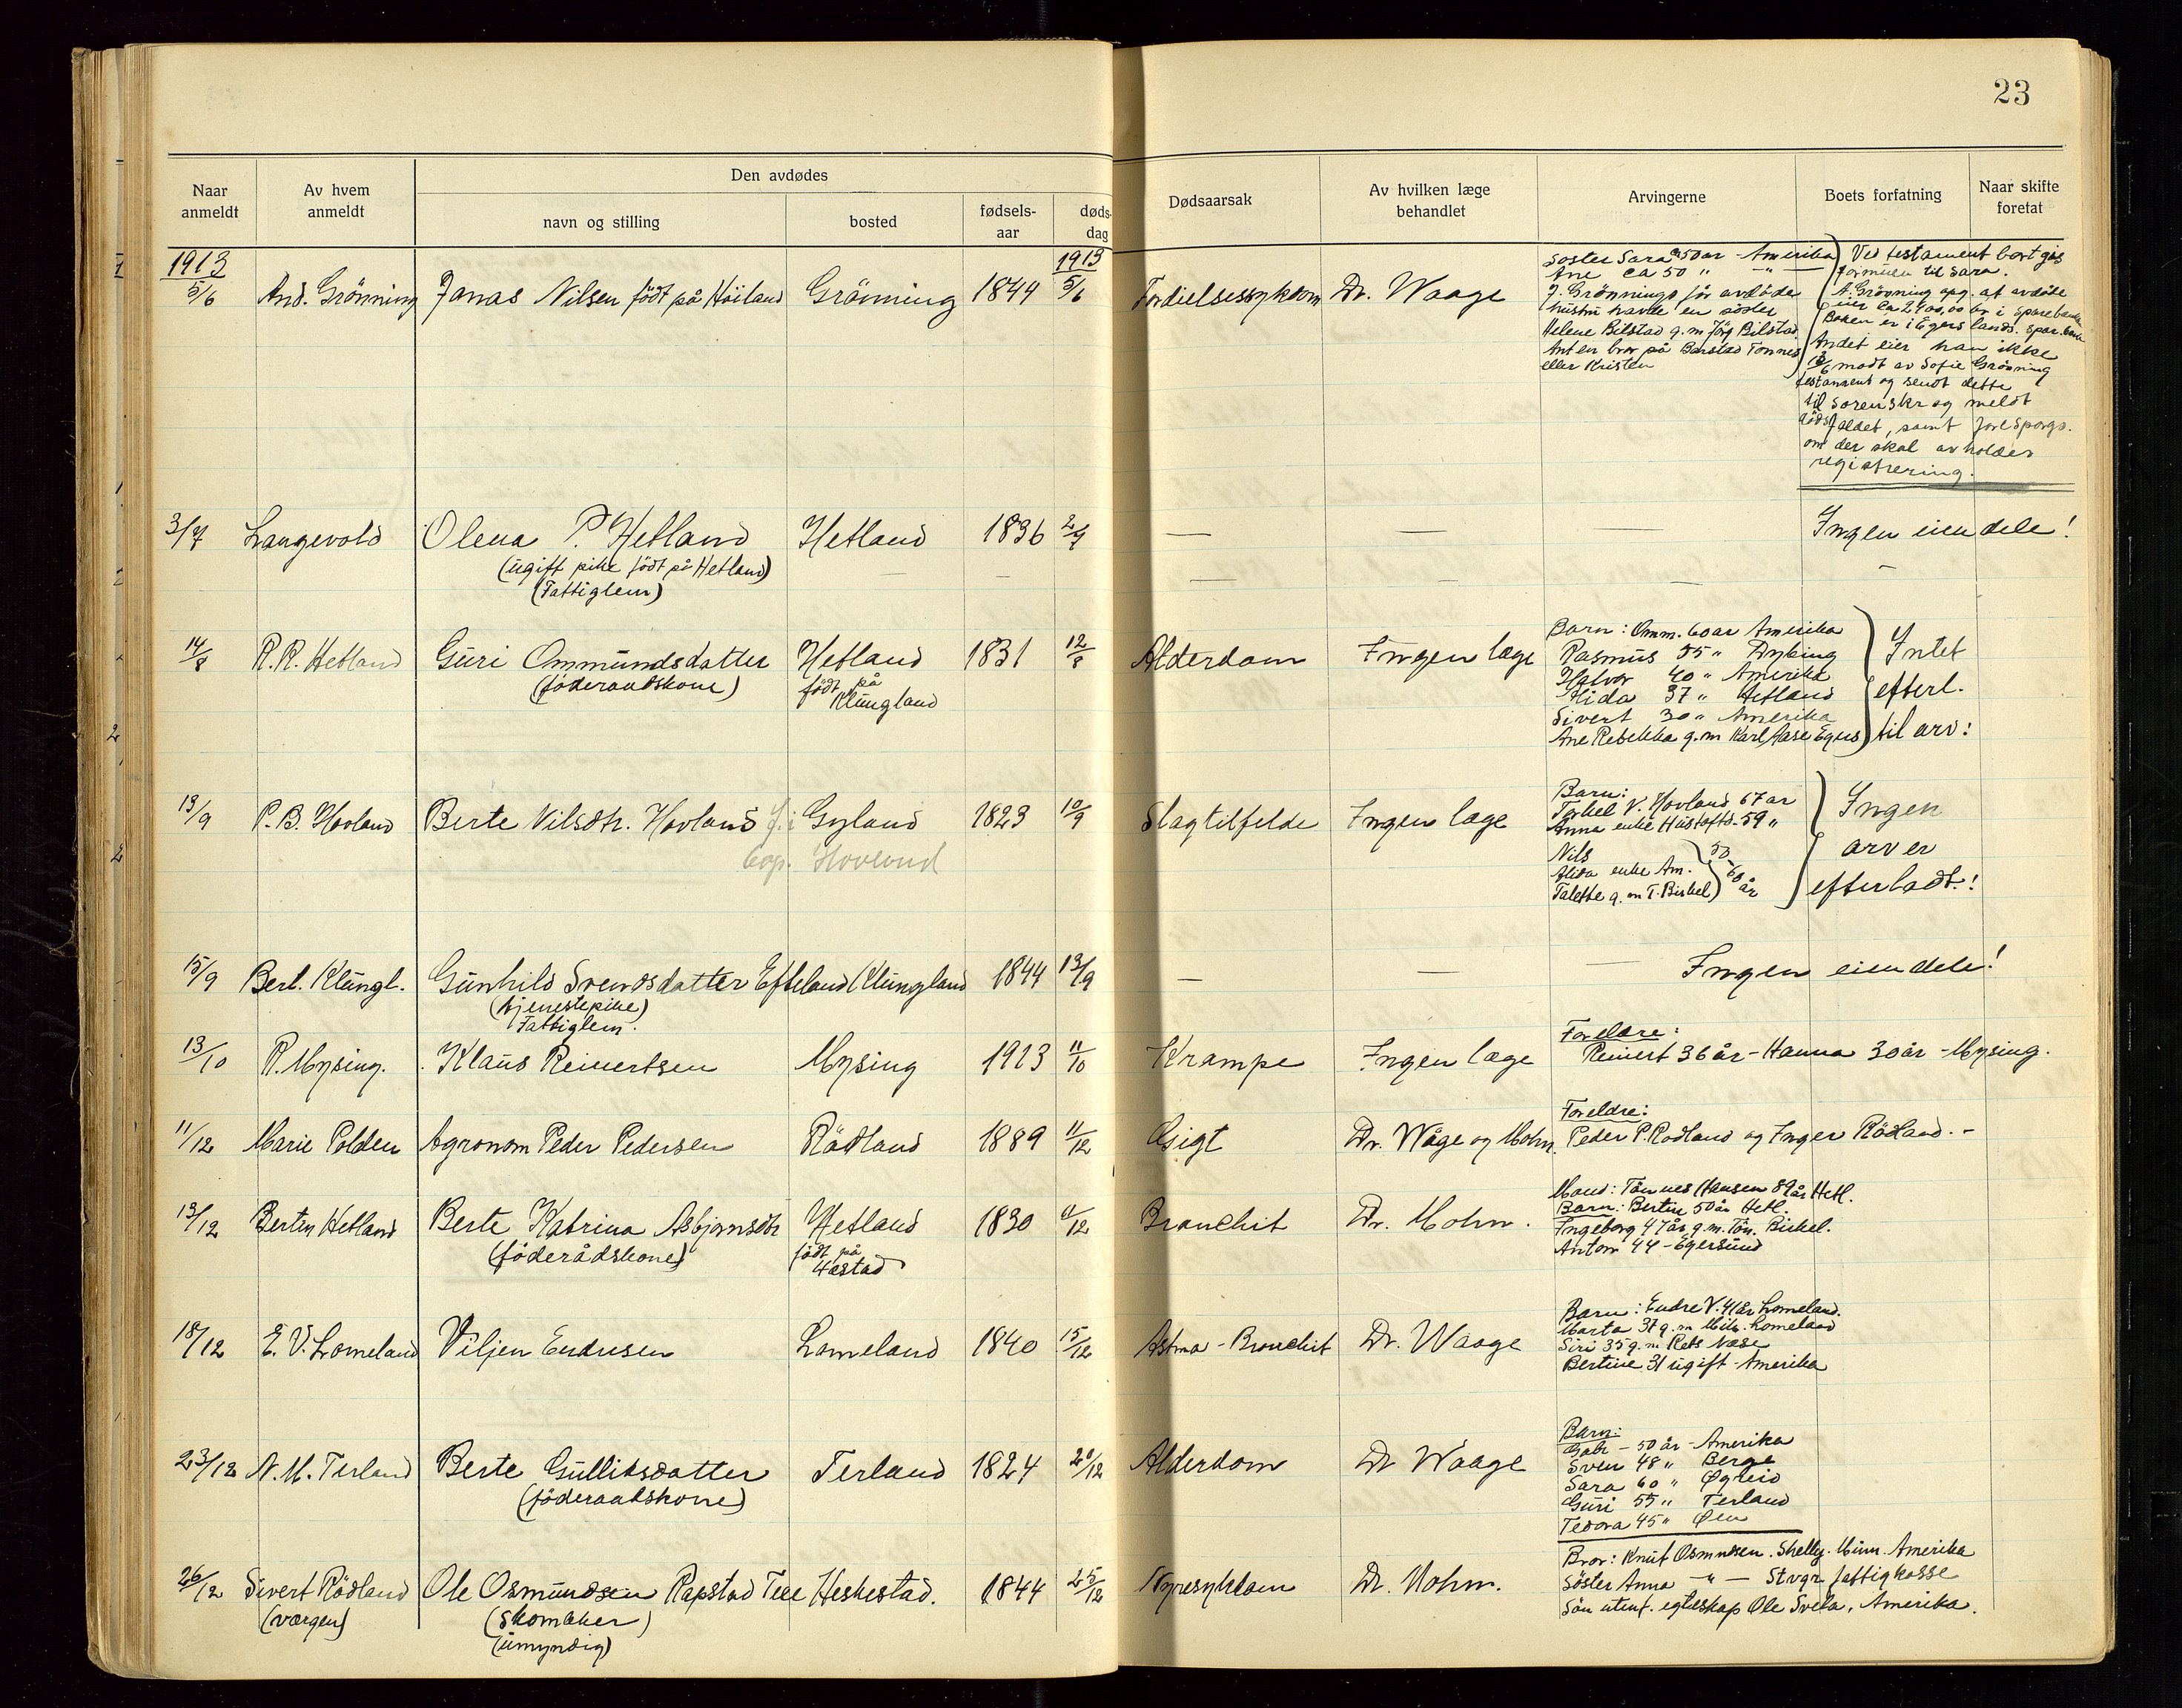 23
Naar anmeldt
Av hvem anmeldt
Den avdødes
navn og stilling
bosted
fødsels-aar
døds-dag
Dødsaarsak
Av hvilken læge behandlet
Arvingerne
Boets forfatning
Naar skifte foretat
1913
5/6 And. Grönning Jonas Nilsen födt på Höiland Grönning 1844 1913 5/6 Dr. Waage
Söster Sara 50 ar - Amerika
Ane ca 50 " - " -
J. Grönnings før avdøde
hustru havde en söster
Helene Bilstad g. m Jörg Bilstad
Ant en bror på Barstad Tönnes
eller Kristen
Ved testament bortgis
formuen til Sara.
A. Grövning opg. at avdöde
eier ca 2400,00 kr i sparebanken
Boken er i Egerslands. spar.bank
Andet eier han ikke
modt av Sofie Grövning
testament og sendt dette
til Sorenskr og meldt
dödsfaldet, samt forespørgs.
om der skal avholdes
registrering.
3/7 Langevold Olena P. Hetland Hetland 1836 2/7 — — — Ingen eiendele!
(ugift pike födt på Hetland)
(Fattiglem)
14/8 R.R. Hetland Guri Ommundsdatter Hetland 1831 12/8 Alderdom Ingen læge
(föderaadskone) födt på Klungland
Barn: Omm. 60 ar Amerika
Rasmus 55 " Dybing
Halvor 40 " Amerika
Alida 37 " Hetland
Sivert 30 " Amerika
Ane Rebekka g. m Karl Aase Egers
Intet
efterl.
til arv!
13/9 P.B. Hovland Berte Nilsdtr. Hovland f. i Gyland 1823 10/9 Slagtilfelde Ingen læge
bop. Hovland
Barn:
Torkel V. Hovland 67 ar
Anna enke Hustoft - 59 "
Nils
Alida enke Am.
Talette g. m T. Birkel
50-60 år
Ingen
arv er
efterladt!
15/9 Berl. Klungl. Gunhild Svendsdatter Efteland Klungland 1844 13/9 — — — Ingen eiendele!
(tjenestepike)
Fattiglem.
13/10 R. Mysing. Klaus Reinertsen Mysing 1913 11/10 Krampe Ingen læge
Foreldre:
Reinert 36 år - Hanna 30 år - Mysing.
11/12 Marie Polden Agronom Peder Pedersen Rödland 1889 11/12 Gigt Dr. Wåge og Mohn.
Foreldre:
Peder P. Rodland og Inger Rödland. -
13/12 Bertin Hetland Berte Katrina Asbjørnsdtr Hetland 1830 11/12 Bronchit Dr. Mohn.
(föderådskone) födt på
Mand: Tönnes Hansen 89 år Hetl.
Barn: Bertine 50 år Hetl.
Ingeborg 47 år g. m. Tön. Birkel.
Anton 44 - Egersund
18/12 E. V. Lomeland Viljen Endresen Lomeland 1840 15/12 Astma - Bronchit Dr. Waage
Barn: Endre V. 41 år Lomeland.
Marta 37 g. m Lomeland
Siri 35 g. m Næse
Bertine 31 ugift - Amerika
23/12 N. M. Terland Berte Gulliksdatter Terland 1824 20/12 Alderdom Dr Waage
(föderaadskone)
Barn:
Gabr - 50 år - Amerika
Sven 48 " Berge
Sara 60 " Øgreid
Guri 55 " Terland
Tedora 45 " Øen
26/12 Sivert Rödland Ole Osmundsen Rapstad Heskestad. 1844 25/12 Nyresykdom Dr. Mohn.
(værgen) (Skomaker)
(umyndig)
Bror: Knut Osmundsen. Shelly. Minn. Amerika
Söster Anna - " - Stvgr fattigkasse
Sön utenf. egteskap Ole Svela, Amerika.